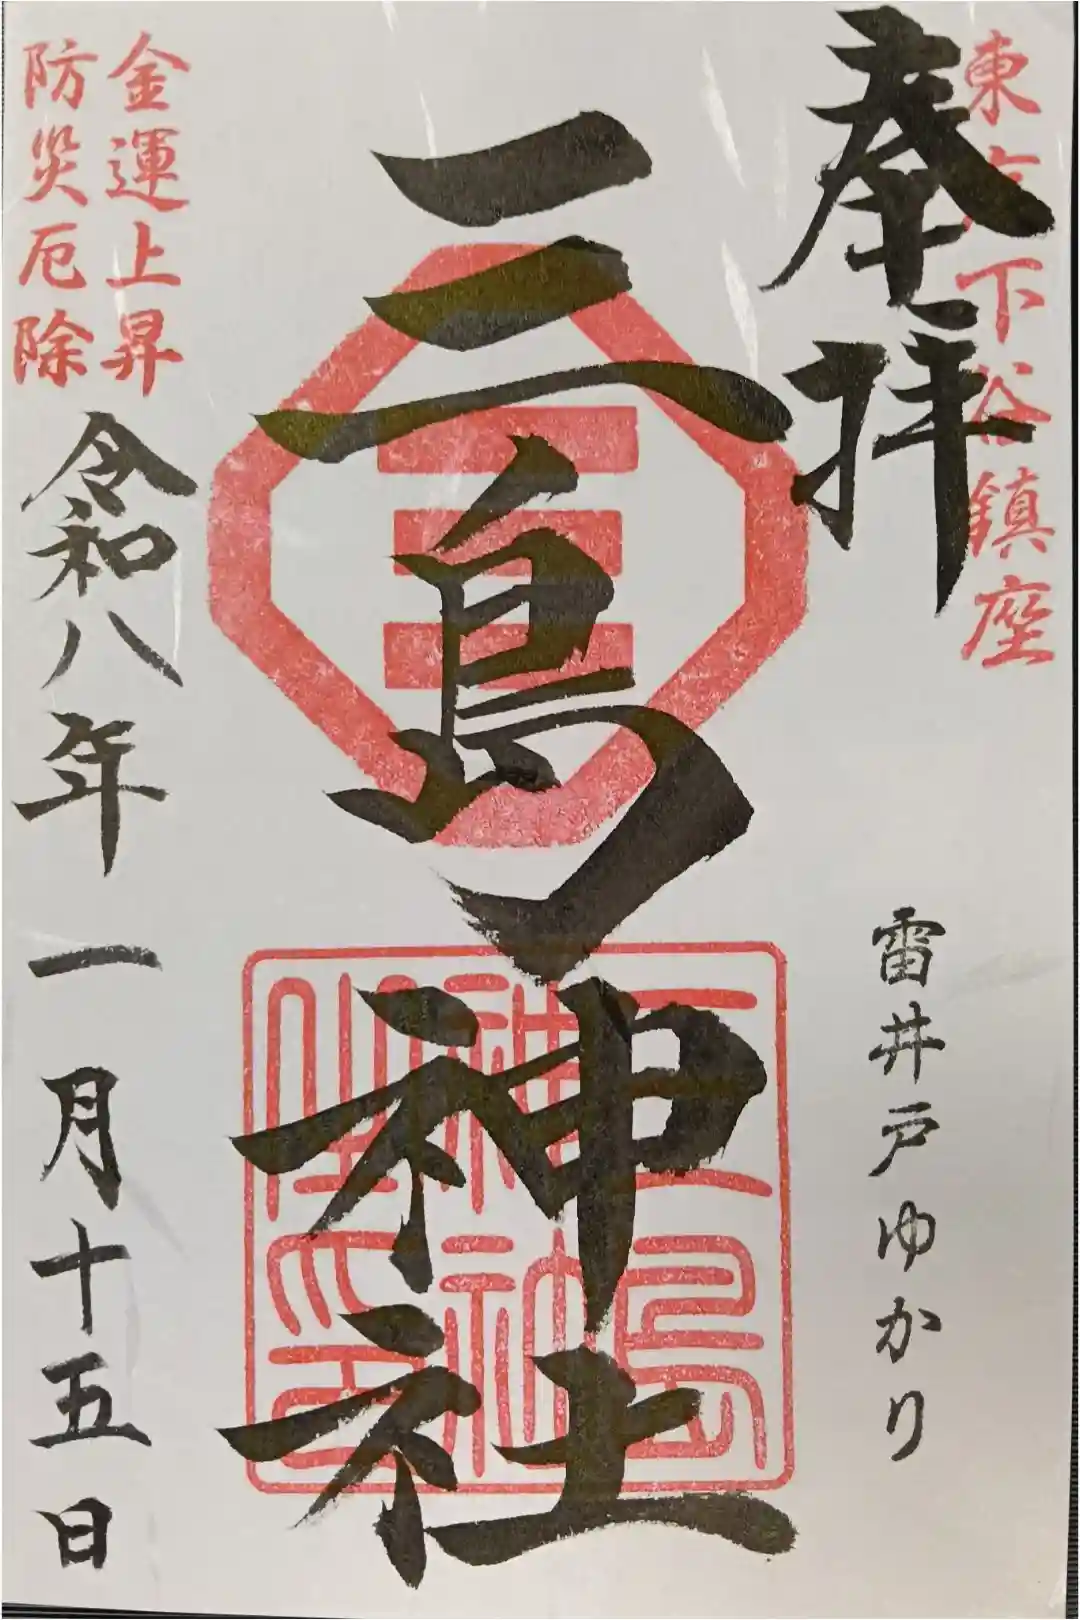 東京下谷鎮座
奉拝
雷井戸ゆかり
三島神社
三島神社之印
金運上昇
防災厄除
令和八年一月十五日